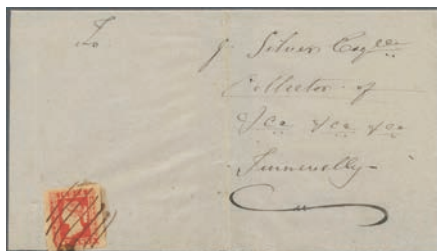 To
J. Silver Esqre
Collector of
&ca &ca &ca
Tinnevelly